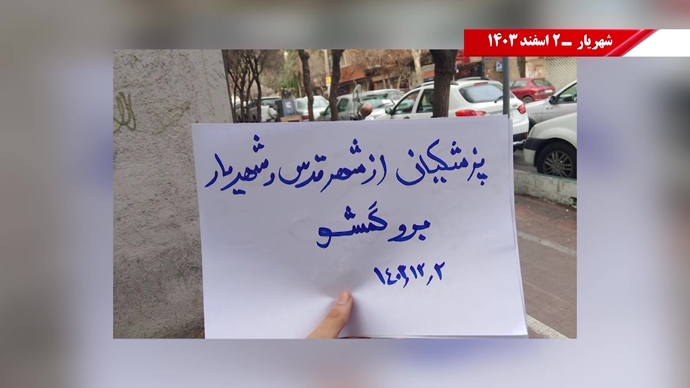 شهریار _ ۲ اسفند ۱۴۰۳
پزشکیان از شهرقدس و شهریار
برو گمشو
۱۴۰۳٫۱۲٫۲